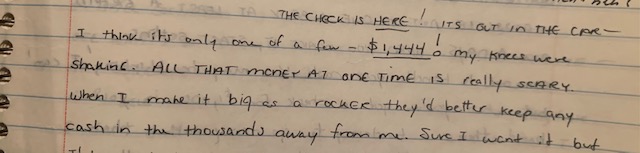 THE CHECK IS HERE! ITS OUT IN THE CAR—
I think its only one of a few – $1,444! my knees were
shaking. ALL THAT money AT one Time is really SCARY.
When I make it big as a rocker they'd better keep any
cash in the thousands away from me. Sure I want it but